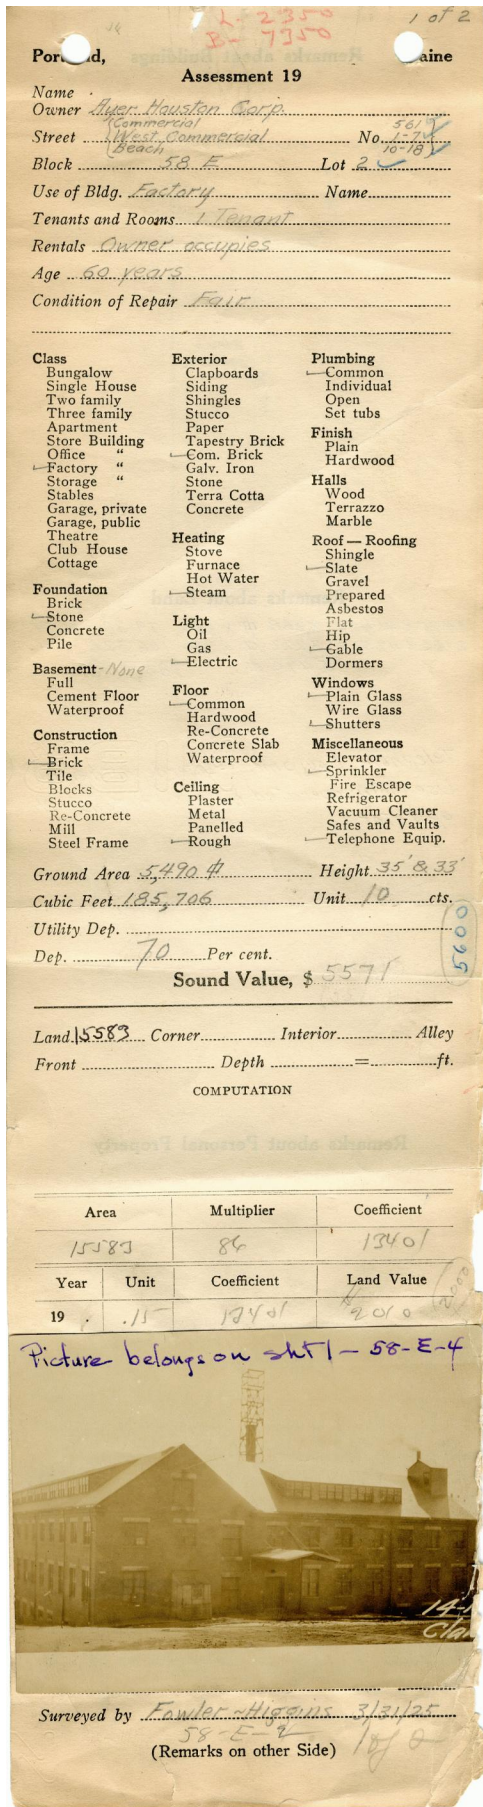 1 of 2
L- 2350
B- 7350
Portland, Maine
Assessment 19
Name
Owner Ayer Houston Corp.
Commercial 561
Street West Commercial No. 1-7
Beach 10-18
Block 58 E Lot 2
Use of Bldg. Factory Name
Tenants and Rooms 1 Tenant
Rentals Owner occupies
Age 60 years
Condition of Repair Fair
Class
Bungalow
Single House
Two family
Three family
Apartment
Store Building
Office "
Factory "
Storage "
Stables
Garage, private
Garage, public
Theatre
Club House
Cottage
Foundation
Brick
Stone
Concrete
Pile
Basement - None
Full
Cement Floor
Waterproof
Construction
Frame
Brick
Tile
Blocks
Stucco
Re-Concrete
Mill
Steel Frame
Exterior
Clapboards
Siding
Shingles
Stucco
Paper
Tapestry Brick
Com. Brick
Galv. Iron
Stone
Terra Cotta
Concrete
Heating
Stove
Furnace
Hot Water
Steam
Light
Oil
Gas
Electric
Floor
Common
Hardwood
Re-Concrete
Concrete Slab
Waterproof
Ceiling
Plaster
Metal
Panelled
Rough
Plumbing
Common
Individual
Open
Set tubs
Finish
Plain
Hardwood
Halls
Wood
Terrazzo
Marble
Roof — Roofing
Shingle
Slate
Gravel
Prepared
Asbestos
Flat
Hip
Gable
Dormers
Windows
Plain Glass
Wire Glass
Shutters
Miscellaneous
Elevator
Sprinkler
Fire Escape
Refrigerator
Vacuum Cleaner
Safes and Vaults
Telephone Equip.
Ground Area 5,490 Height 35' & 33'
Cubic Feet 185,706 Unit 10 cts.
Utility Dep.
Dep. 70 Per cent.
5600
Sound Value, $ 5571
Land 15583 Corner Interior Alley
Front Depth = ft.
COMPUTATION
Area Multiplier Coefficient
15583 86 13401
Year Unit Coefficient Land Value
19 . .15 13401 2010
2000
Picture belongs on sht 1 - 58-E-4
Surveyed by Fowler - Higgins 3/31/25
58-E-2 1 of 2
(Remarks on other Side)